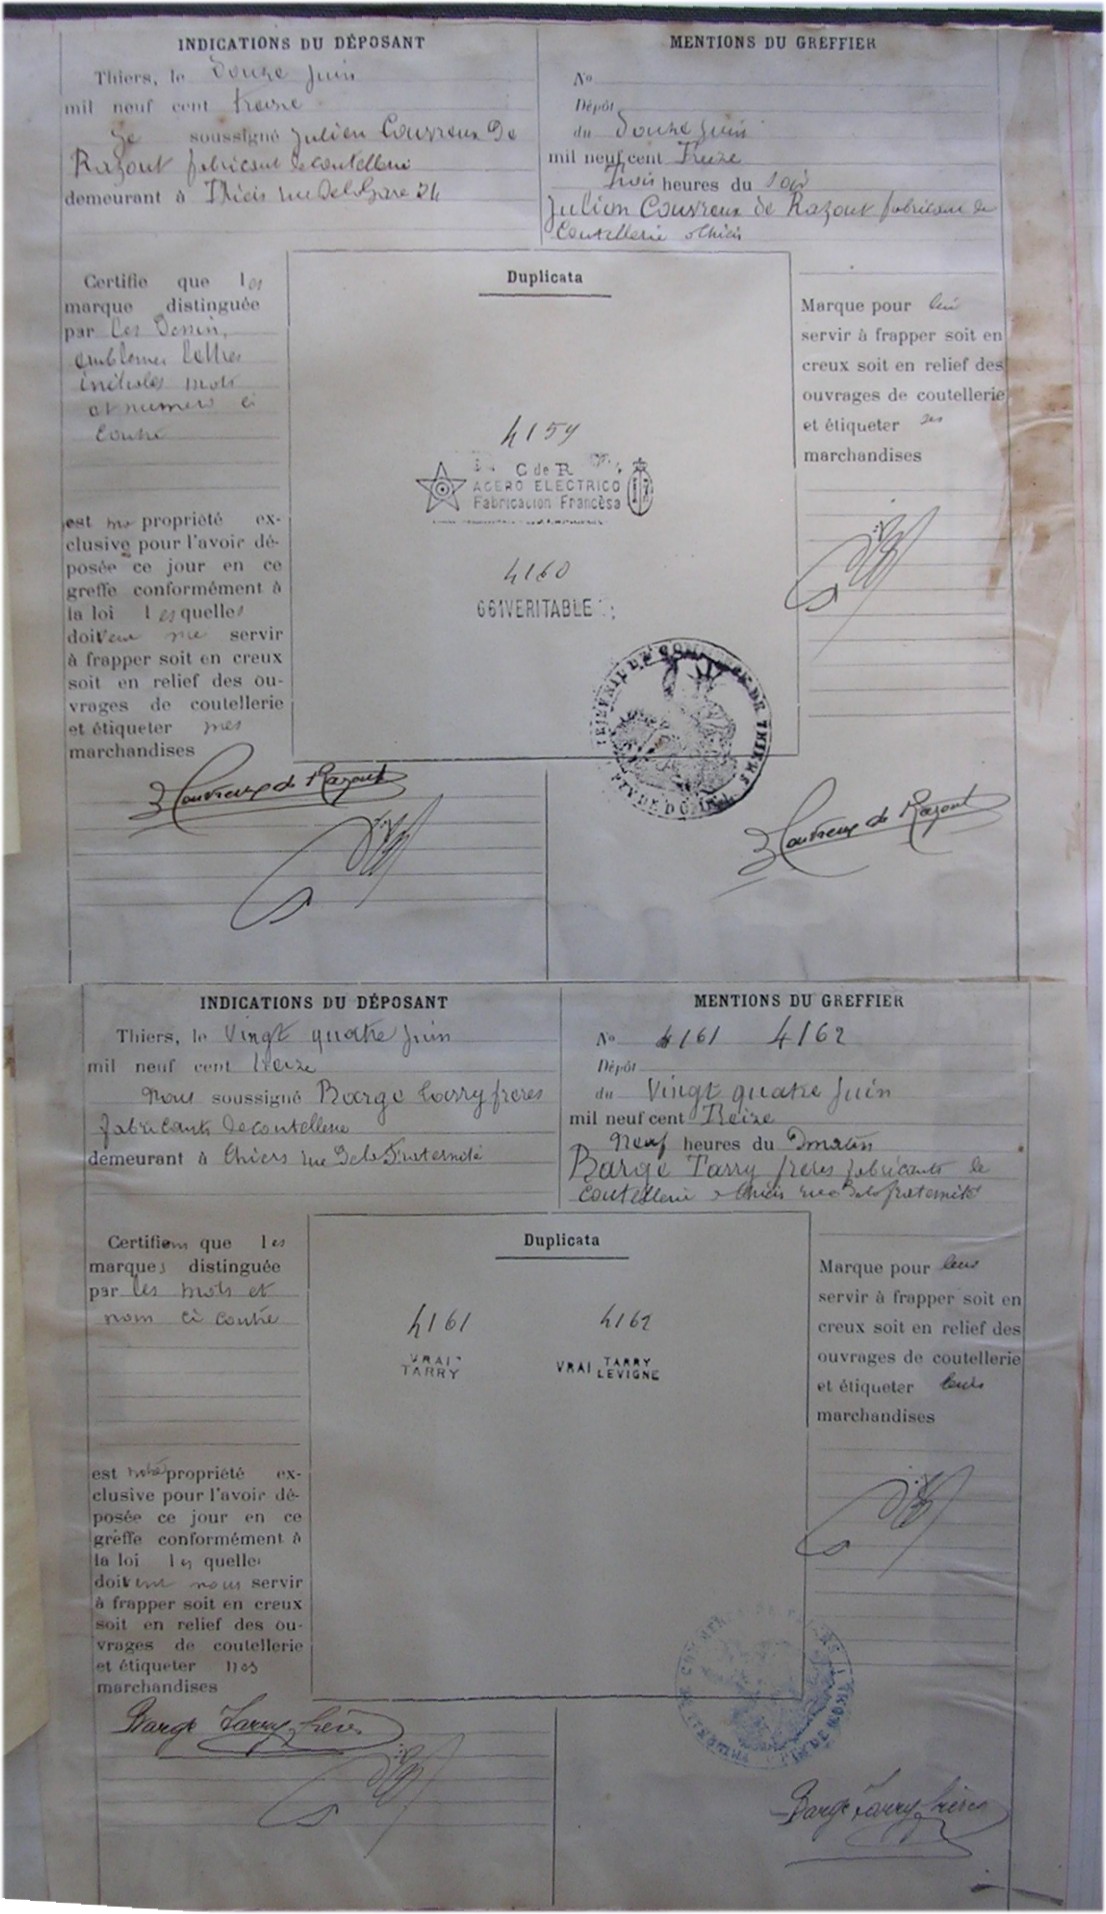 INDICATIONS DU DÉPOSANT
Thiers, le Douze Juin
mil neuf cent treize
Je soussigné Julien Couvreux De
Razout fabricant de coutellerie
demeurant à Thiers rue De la Gare 24
MENTIONS DU GREFFIER
No
Dépôt
du Douze Juin
mil neuf cent Treize
Trois heures du soir
Julien Couvreux de Razout fabricant de
Coutellerie à Thiers
Certifie que les
marque distinguée
par les Dessin,
emblemes lettres
initiales mots
et numero ci
contre
est ma propriété ex-
clusive pour l'avoir dé-
posée ce jour en ce
greffe conformément à
la loi lesquelles
doivent me servir
à frapper soit en creux
soit en relief des ou-
vrages de coutellerie
et étiqueter mes
marchandises
Duplicata
4159
C de R
ACERO ELECTRICO
Fabricacion Francèsa
4160
661 VERITABLE
TRIBUNAL DE COMMERCE DE THIERS
PUY DE DOME
Marque pour lui
servir à frapper soit en
creux soit en relief des
ouvrages de coutellerie
et étiqueter ses
marchandises
J Couvreux de Razout
J Couvreux de Razout
INDICATIONS DU DÉPOSANT
Thiers, le Vingt quatre Juin
mil neuf cent treize
Nous soussigné Barge Tarry freres
fabricants de coutellerie
demeurant à Thiers rue De la Fraternité
MENTIONS DU GREFFIER
No 4161 4162
Dépôt
du Vingt quatre Juin
mil neuf cent Treize
Neuf heures du matin
Barge Tarry freres fabricants de
coutellerie à Thiers rue De la fraternité
Certifions que les
marques distinguée
par les mots et
nom ci contre
est notre propriété ex-
clusive pour l'avoir dé-
posée ce jour en ce
greffe conformément à
la loi les quelles
doivent nous servir
à frapper soit en creux
soit en relief des ou-
vrages de coutellerie
et étiqueter nos
marchandises
Duplicata
4161 4162
VRAI
TARRY
VRAI TARRY
LEVIGNE
Marque pour leur
servir à frapper soit en
creux soit en relief des
ouvrages de coutellerie
et étiqueter leurs
marchandises
Barge Tarry frères
Barge Tarry frères